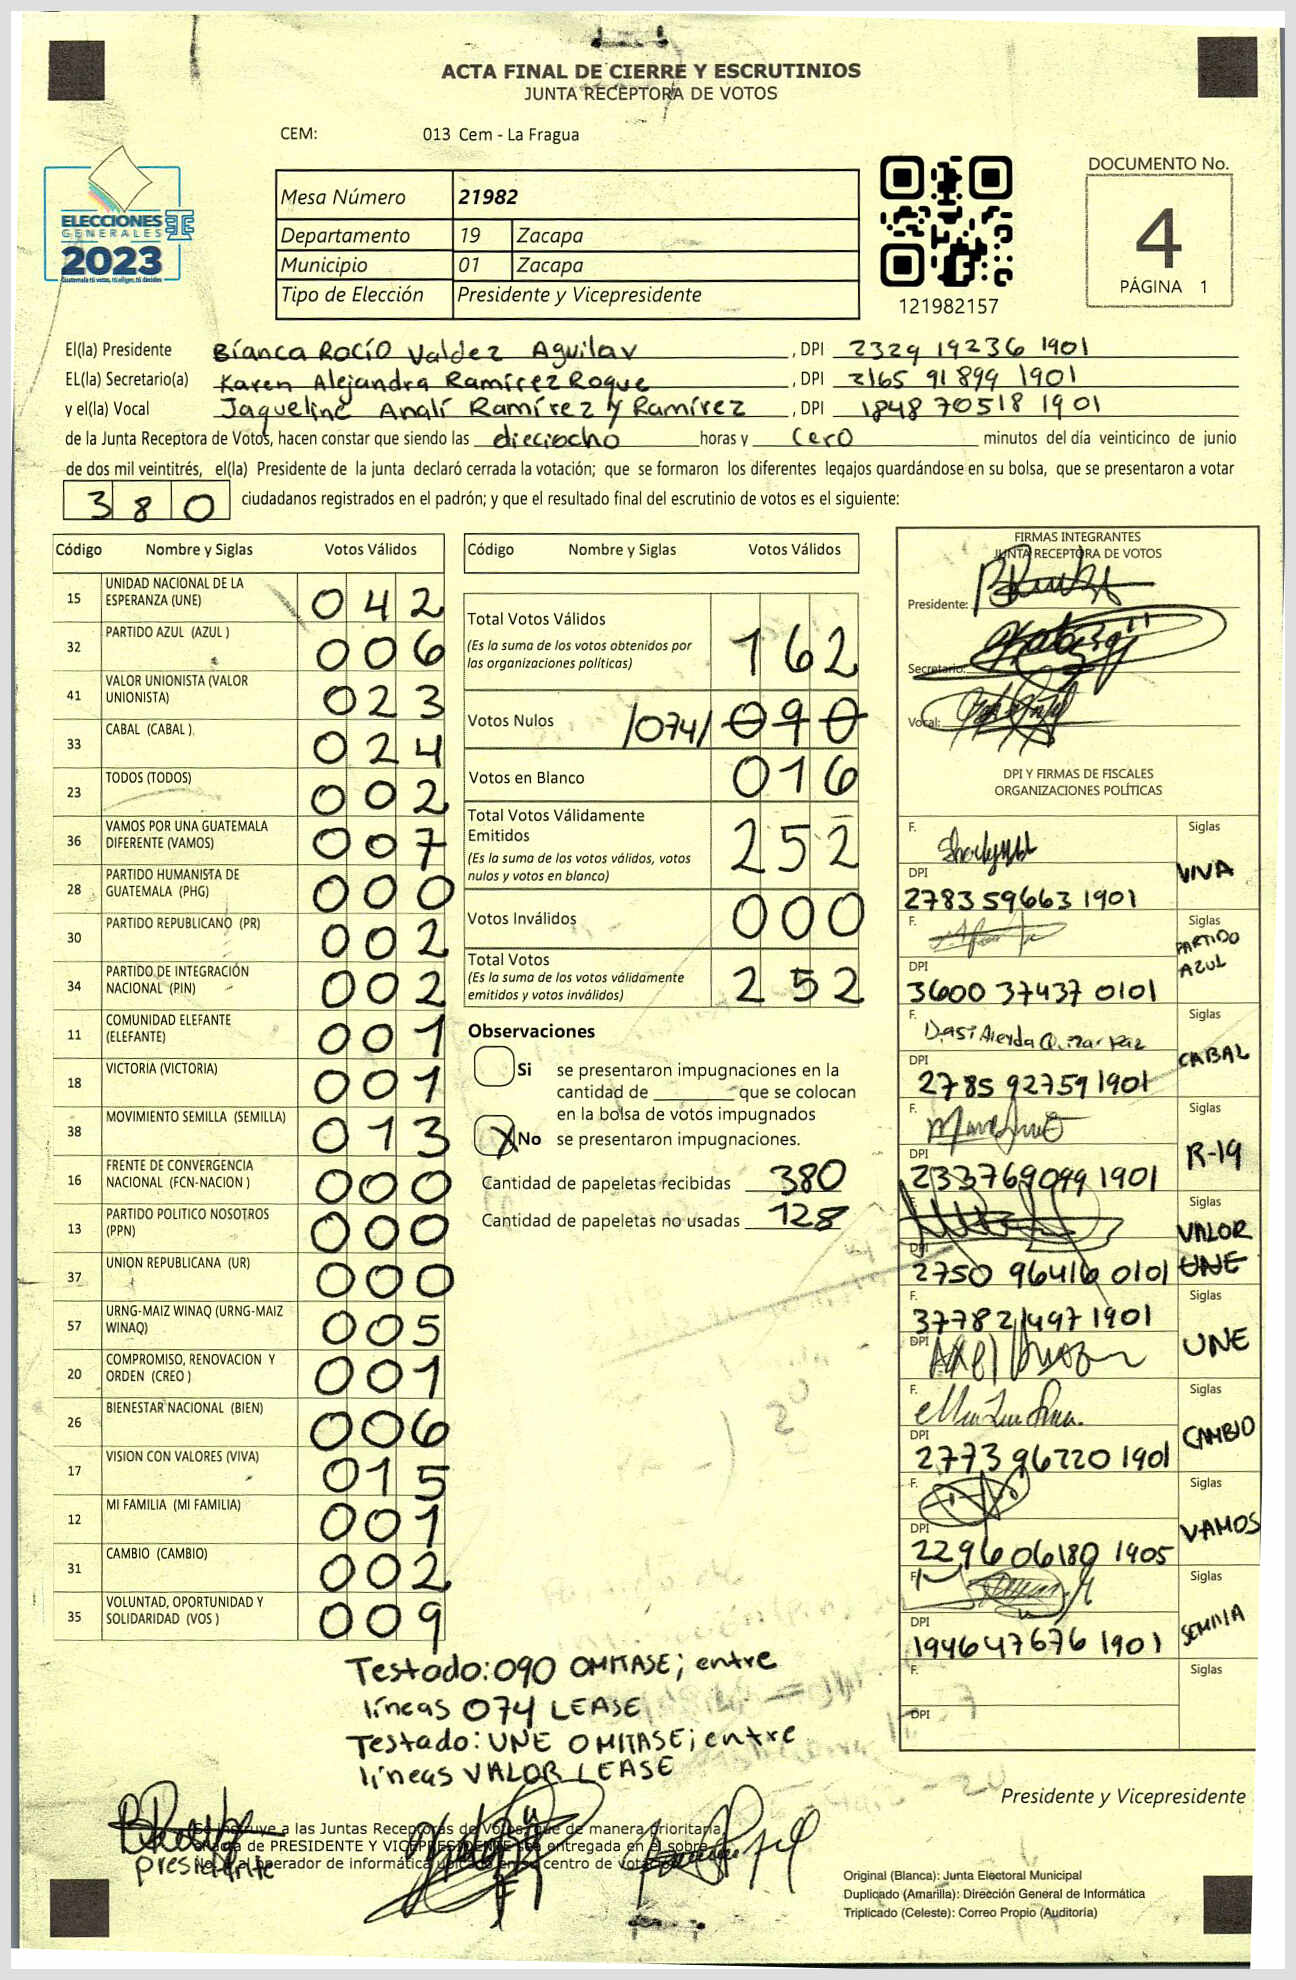 ACTA FINAL DE CIERRE Y ESCRUTINIOS
JUNTA RECEPTORA DE VOTOS
CEM: 013 Cem - La Fragua
ELECCIONES
GENERALES
2023
Mesa Número 21982
Departamento 19 Zacapa
Municipio 01 Zacapa
Tipo de Elección Presidente y Vicepresidente
121982157
DOCUMENTO No.
4
PÁGINA 1
El(la) Presidente Bianca Rocío Valdez Aguilar, DPI 2329 19236 1901
EL(la) Secretario(a) Karen Alejandra Ramírez Roque, DPI 2165 91899 1901
y el(la) Vocal Jaqueline Analí Ramírez y Ramírez, DPI 1848 70518 1901
de la Junta Receptora de Votos, hacen constar que siendo las dieciocho horas y cero minutos del día veinticinco de junio
de dos mil veintitrés, el(la) Presidente de la junta declaró cerrada la votación; que se formaron los diferentes legajos guardándose en su bolsa, que se presentaron a votar
380 ciudadanos registrados en el padrón; y que el resultado final del escrutinio de votos es el siguiente:
Código Nombre y Siglas Votos Válidos
15 UNIDAD NACIONAL DE LA ESPERANZA (UNE) 042
32 PARTIDO AZUL (AZUL ) 006
41 VALOR UNIONISTA (VALOR UNIONISTA) 023
33 CABAL (CABAL ) 024
23 TODOS (TODOS) 002
36 VAMOS POR UNA GUATEMALA DIFERENTE (VAMOS) 007
28 PARTIDO HUMANISTA DE GUATEMALA (PHG) 000
30 PARTIDO REPUBLICANO (PR) 002
34 PARTIDO DE INTEGRACIÓN NACIONAL (PIN) 002
11 COMUNIDAD ELEFANTE (ELEFANTE) 001
18 VICTORIA (VICTORIA) 001
38 MOVIMIENTO SEMILLA (SEMILLA) 013
16 FRENTE DE CONVERGENCIA NACIONAL (FCN-NACION ) 000
13 PARTIDO POLITICO NOSOTROS (PPN) 000
37 UNION REPUBLICANA (UR) 000
57 URNG-MAIZ WINAQ (URNG-MAIZ WINAQ) 005
20 COMPROMISO, RENOVACION Y ORDEN (CREO ) 001
26 BIENESTAR NACIONAL (BIEN) 006
17 VISION CON VALORES (VIVA) 015
12 MI FAMILIA (MI FAMILIA) 001
31 CAMBIO (CAMBIO) 002
35 VOLUNTAD, OPORTUNIDAD Y SOLIDARIDAD (VOS ) 009
Código Nombre y Siglas Votos Válidos
Total Votos Válidos 162
(Es la suma de los votos obtenidos por
las organizaciones políticas)
Votos Nulos /074/ 090
Votos en Blanco 016
Total Votos Válidamente
Emitidos 252
(Es la suma de los votos válidos, votos
nulos y votos en blanco)
Votos Inválidos 000
Total Votos 252
(Es la suma de los votos válidamente
emitidos y votos inválidos)
Observaciones
Si se presentaron impugnaciones en la
cantidad de ________ que se colocan
en la bolsa de votos impugnados
X No se presentaron impugnaciones.
Cantidad de papeletas recibidas 380
Cantidad de papeletas no usadas 128
FIRMAS INTEGRANTES
JUNTA RECEPTORA DE VOTOS
Presidente:
Secretario:
Vocal:
DPI Y FIRMAS DE FISCALES
ORGANIZACIONES POLÍTICAS
F. Siglas
DPI VIVA
2783 59663 1901
F. Siglas
PARTIDO
AZUL
DPI
3600 37437 0101
F. Siglas
DPI CABAL
2785 92759 1901
F. Siglas
DPI R-19
233769099 1901
Siglas
VALOR
DPI
2750 96416 0101 UNE
F. Siglas
377821497 1901
DPI UNE
F. Siglas
DPI CAMBIO
2773 96720 1901
F. Siglas
DPI VAMOS
2296 06180 1905
F. Siglas
DPI SEMILLA
194647676 1901
F. Siglas
DPI
Testado: 090 OMITASE; entre
líneas 074 LEASE
Testado: UNE OMITASE; entre
líneas VALOR LEASE
Presidente y Vicepresidente
Se instruye a las Juntas Receptoras de Votos, que de manera prioritaria,
de PRESIDENTE Y VICEPRESIDENTE sea entregada en el sobre
al operador de informática ubicado en su centro de votación
presidente
Original (Blanca): Junta Electoral Municipal
Duplicado (Amarilla): Dirección General de Informática
Triplicado (Celeste): Correo Propio (Auditoría)